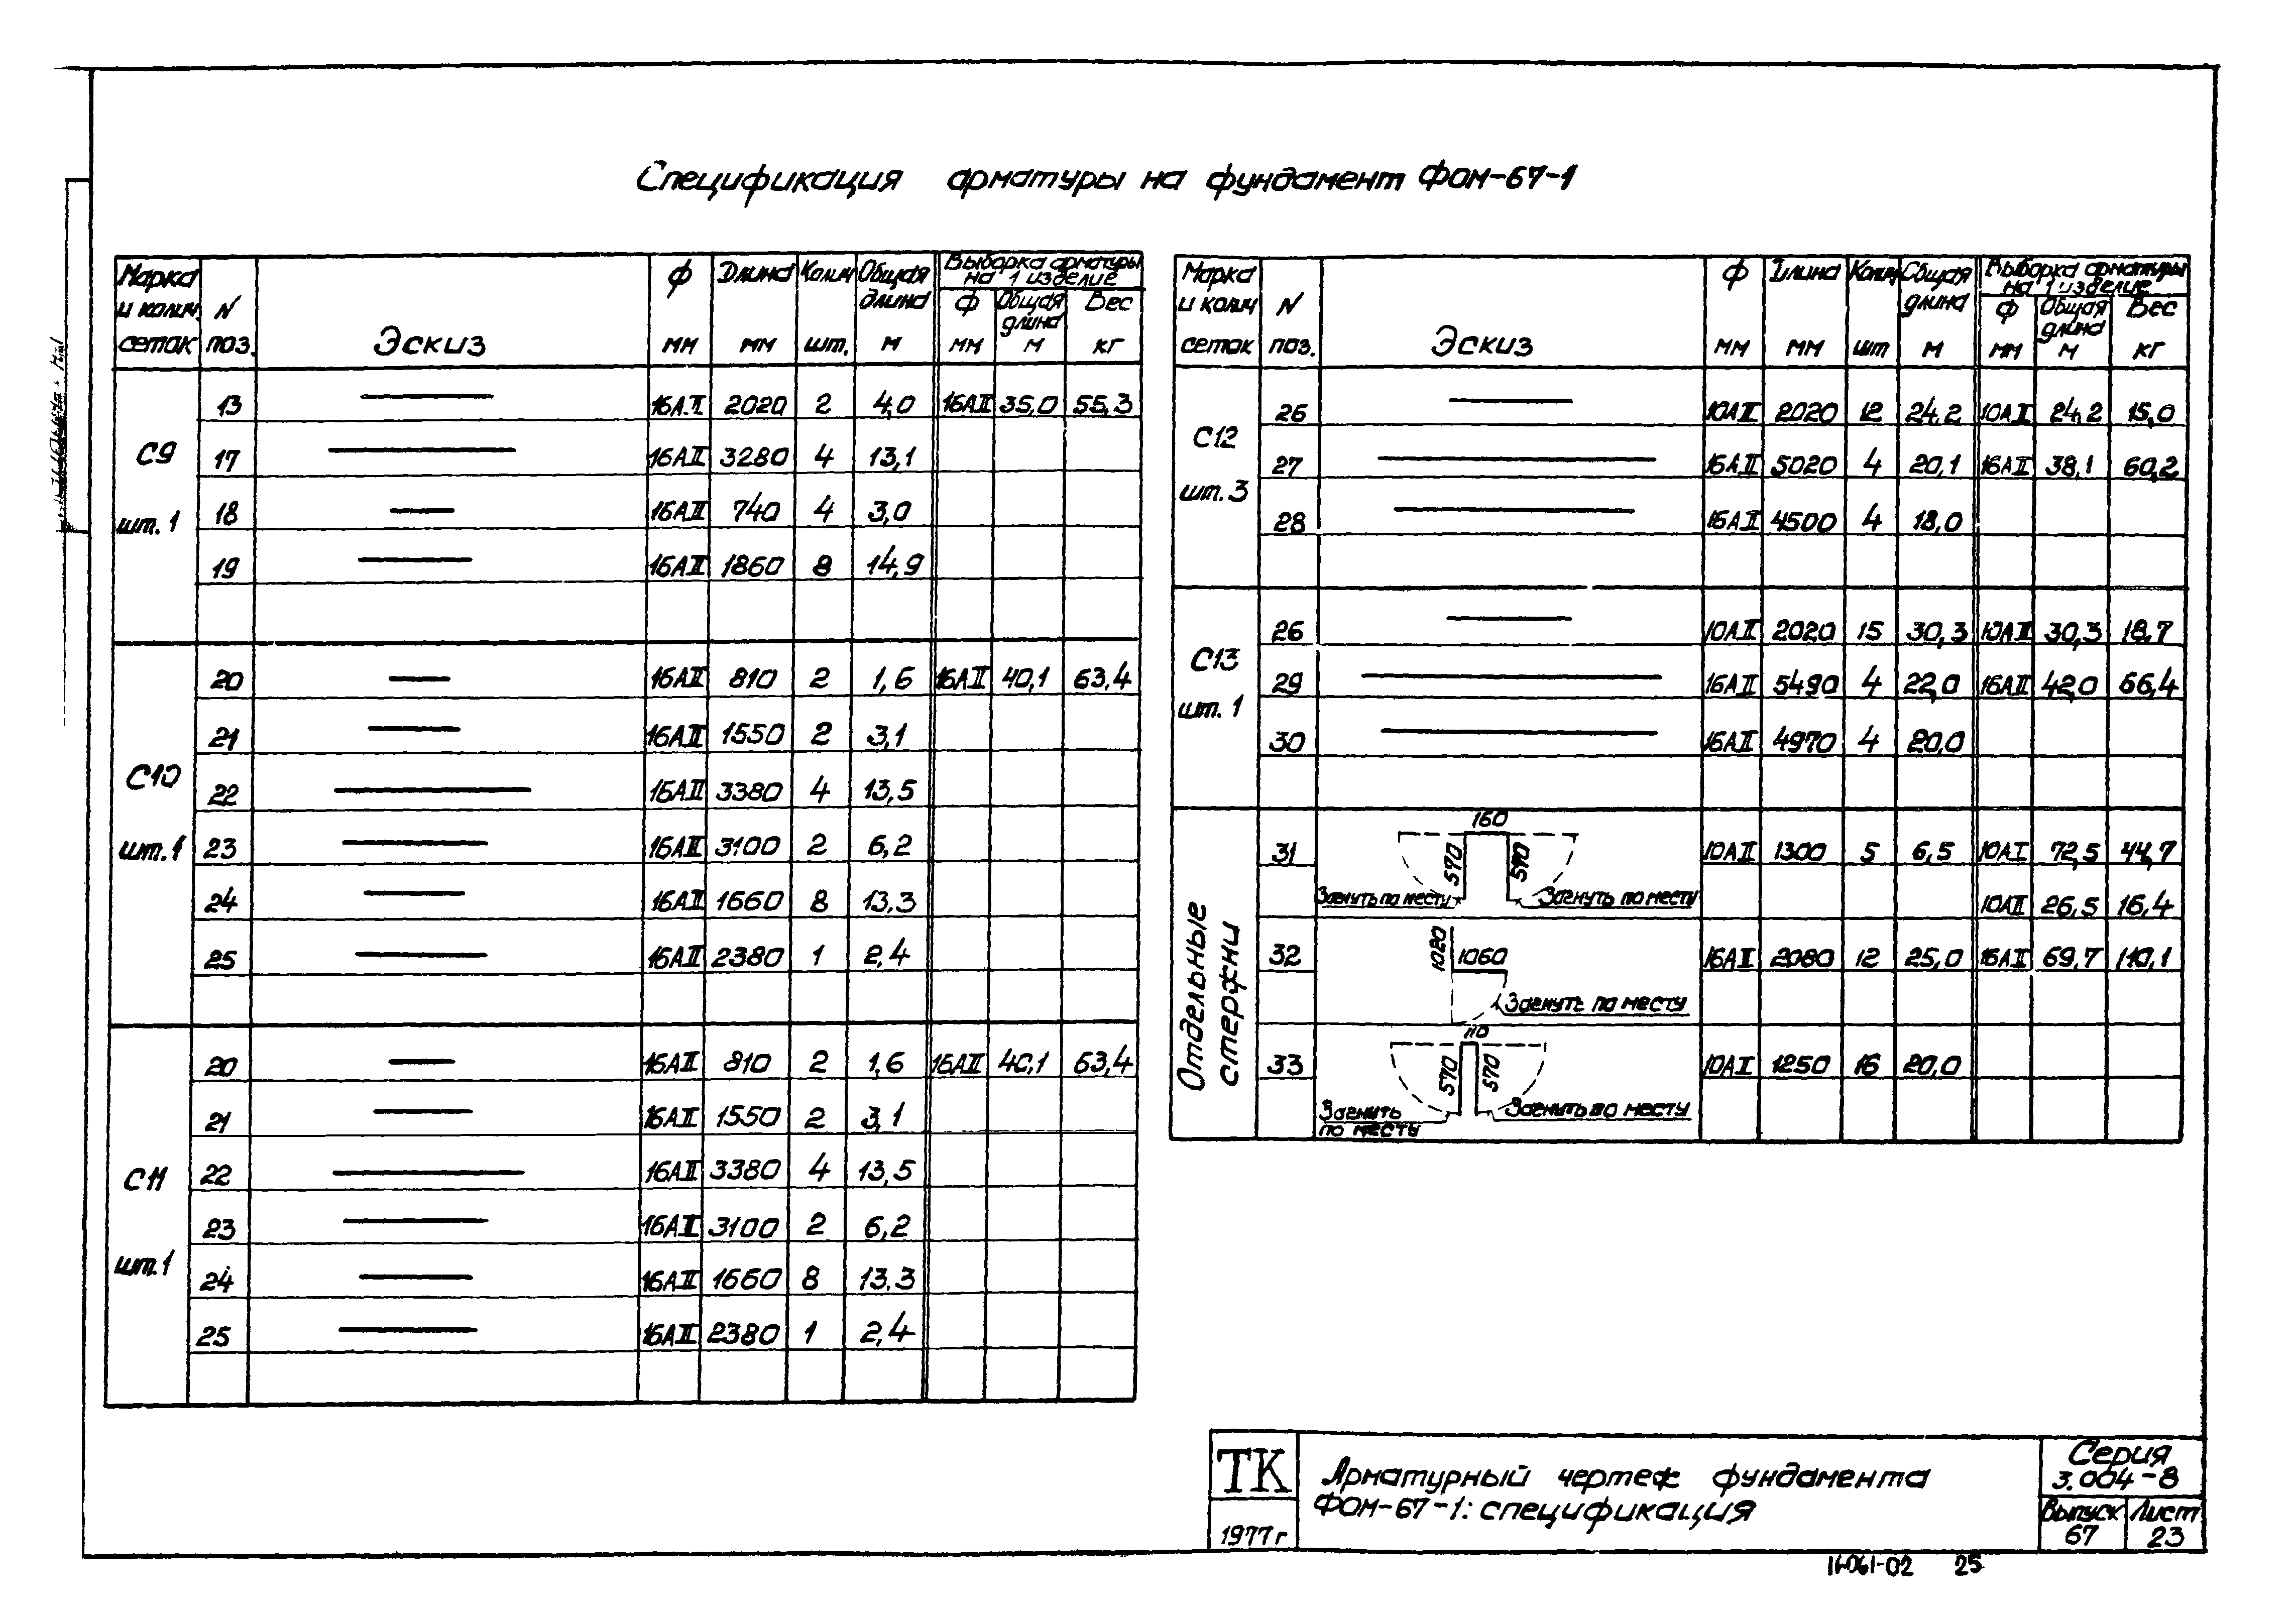 Спецификация арматуры на фундамент ФОМ-67-1
Марка и колич. сеток | N поз. | Эскиз | Ф мм | Длина мм | Колич шт. | Общая длина м | Выборка арматуры на 1 изделие
Ф мм | Общая длина м | Вес кг
С9 шт. 1
13 | 16АII | 2020 | 2 | 4,0 | 16АII | 35,0 | 55,3
17 | 16АII | 3280 | 4 | 13,1
18 | 16АII | 740 | 4 | 3,0
19 | 16АII | 1860 | 8 | 14,9
С10 шт.1
20 | 16АII | 810 | 2 | 1,6 | 16АII | 40,1 | 63,4
21 | 16АII | 1550 | 2 | 3,1
22 | 16АII | 3380 | 4 | 13,5
23 | 16АII | 3100 | 2 | 6,2
24 | 16АII | 1660 | 8 | 13,3
25 | 16АII | 2380 | 1 | 2,4
С11 шт.1
20 | 16АII | 810 | 2 | 1,6 | 16АII | 40,1 | 63,4
21 | 16АII | 1550 | 2 | 3,1
22 | 16АII | 3380 | 4 | 13,5
23 | 16АII | 3100 | 2 | 6,2
24 | 16АII | 1660 | 8 | 13.3
25 | 16АII | 2380 | 1 | 2,4
Марка и колич сеток | N поз. | Эскиз | Ф мм | Длина мм | Колич шт | Общая длина м | Выборка арматуры на 1 изделие
Ф мм | Общая длина м | Вес кг
С12 шт. 3
26 | 10АII | 2020 | 12 | 24,2 | 10АII | 24,2 | 15,0
27 | 16АII | 5020 | 4 | 20,1 | 16АII | 38,1 | 60,2
28 | 16АII | 4500 | 4 | 18,0
С13 шт. 1
26 | 10АII | 2020 | 15 | 30,3 | 10АII | 30,3 | 18,7
29 | 16АII | 5490 | 4 | 22,0 | 16АII | 42,0 | 66,4
30 | 16АII | 4970 | 4 | 20,0
Отдельные стержни
160
570
570
31 | 10АII | 1300 | 5 | 6,5 | 10АI | 72,5 | 44,7
Загнуть по месту
Загнуть по месту
10АII | 26,5 | 16,4
1020
1060
32 | 16АII | 2080 | 12 | 25,0 | 16АII | 69,7 | 110,1
Загнуть по месту
110
570
570
33 | 10АI | 1250 | 16 | 20,0
Загнуть
по месту
Загнуть по месту
ТК
1977г
Арматурный чертеж фундамента
ФОМ-67-1: спецификация
Серия
3.004-8
Выпуск
67
Лист
23
14061-02 25